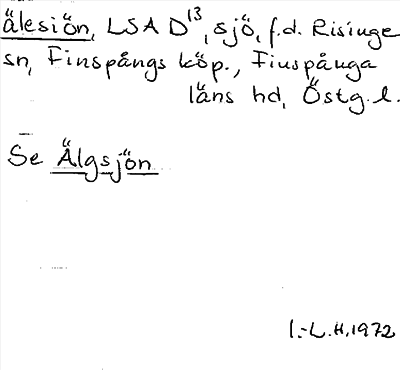 älesiön, LSA D13, sjö, f.d. Risinge
sn, Finspångs köp., Finspånga
läns hd, Östg.l.
Se Älgsjön
I.-L.H. 1972